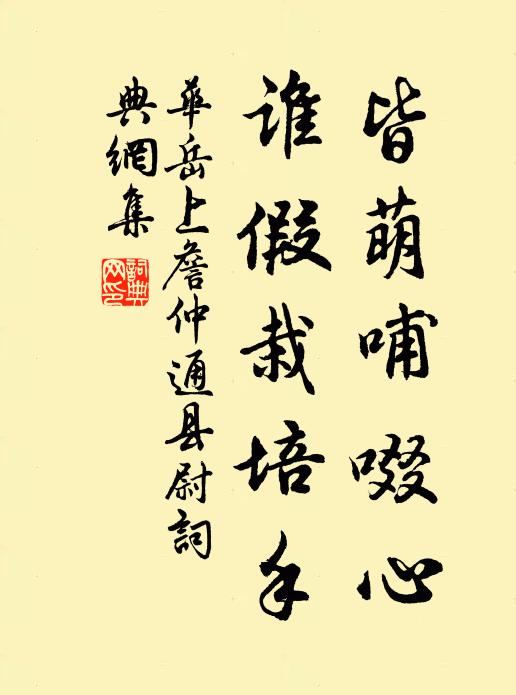 皆萌哺啜心
谁假栽培手
華岳上詹仲通县尉詞
典網集
詞典网印